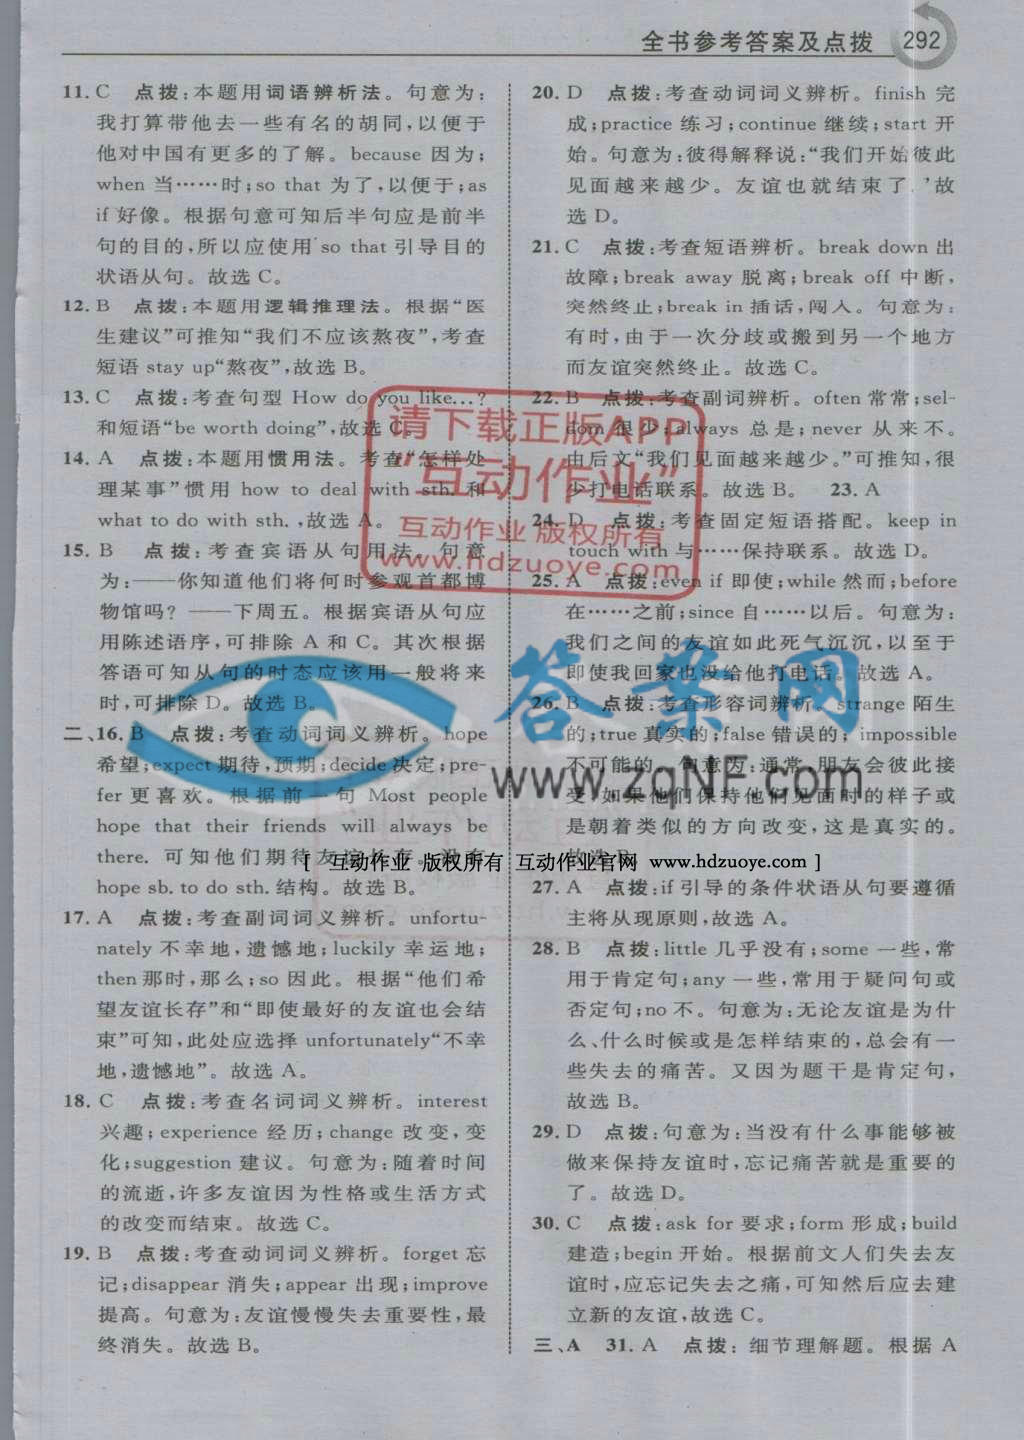 全书参考答案及点拨 292
11. C 点拨:本题用词语辨析法。句意为:
我打算带他去一些有名的胡同,以便于
他对中国有更多的了解。because 因为;
when 当……时;so that 为了,以便于;as
if 好像。根据句意可知后半句应是前半
句的目的,所以应使用 so that 引导目的
状语从句。故选 C。
12. B 点拨:本题用逻辑推理法。根据“医
生建议”可推知“我们不应该熬夜”,考查
短语 stay up“熬夜”,故选 B。
13. C 点拨:考查句型 How do you like…?
和短语“be worth doing”,故选 C。
14. A 点拨:本题用惯用法。考查“怎样处
理某事”惯用 how to deal with sth. 和
what to do with sth. ,故选 A。
15. B 点拨:考查宾语从句用法。句意
为:——你知道他们将何时参观首都博
物馆吗? ——下周五。根据宾语从句应
用陈述语序,可排除 A 和 C。其次根据
答语可知从句的时态应该用一般将来
时,可排除 D。故选 B。
二、16. B 点拨:考查动词词义辨析。hope
希望;expect 期待,预期;decide 决定;pre-
fer 更喜欢。根据前一句 Most people
hope that their friends will always be
there. 可知他们期待友谊长存。没有
hope sb. to do sth.结构。故选 B。
17. A 点拨:考查副词词义辨析。unfortu-
nately 不幸地,遗憾地;luckily 幸运地;
then 那时,那么;so 因此。根据“他们希
望友谊长存”和“即使最好的友谊也会结
束”可知,此处应选择 unfortunately“不幸
地,遗憾地”。故选 A。
18. C 点拨:考查名词词义辨析。interest
兴趣;experience 经历;change 改变,变
化;suggestion 建议。句意为:随着时间
的流逝,许多友谊因为性格或生活方式
的改变而结束。故选 C。
19. B 点拨:考查动词词义辨析。forget 忘
记;disappear 消失;appear 出现;improve
提高。句意为:友谊慢慢失去重要性,最
终消失。故选 B。
20. D 点拨:考查动词词义辨析。finish 完
成;practice 练习;continue 继续;start 开
始。句意为:彼得解释说:“我们开始彼此
见面越来越少。友谊也就结束了.’故
选 D。
21. C 点拨:考查短语辨析。break down 出
故障;break away 脱离;break off 中断,
突然终止;break in 插话,闯入。句意为:
有时,由于一次分歧或搬到另一个地方
而友谊突然终止。故选 C。
22. B 点拨:考查副词辨析。often 常常;sel-
dom 很少;always 总是;never 从来不。
由后文“我们见面越来越少。”可推知,很
少打电话联系。故选 B。 23. A
24. D 点拨:考查固定短语搭配。keep in
touch with 与……保持联系。故选 D。
25. A 点拨:even if 即使;while 然而;before
在……之前;since 自……以后。句意为:
我们之间的友谊如此死气沉沉,以至于
即使我回家也没给他打电话。故选 A。
26. B 点拨:考查形容词辨析。strange 陌生
的;true 真实的;false 错误的;impossible
不可能的。句意为:通常,朋友会彼此接
受,如果他们保持他们见面时的样子或
是朝着类似的方向改变,这是真实的。
故选 B。
27. A 点拨:if 引导的条件状语从句要遵循
主将从现原则,故选 A。
28. B 点拨:little 几乎没有;some 一些,常
用于肯定句;any 一些,常用于疑问句或
否定句;no 不。句意为:无论友谊是为什
么、什么时候或是怎样结束的,总会有一
些失去的痛苦。又因为题干是肯定句,
故选 B。
29. D 点拨:句意为:当没有什么事能够被
做来保持友谊时,忘记痛苦就是重要的
了。故选 D。
30. C 点拨:ask for 要求;form 形成;build
建造;begin 开始。根据前文人们失去友
谊时,应忘记失去之痛,可知然后应去建
立新的友谊,故选 C。
三、A 31. A 点拨:细节理解题。根据 A
请下载正版APP
“互动作业”
互动作业 版权所有
www.hdzuoye.com
答案网
www.zqNF.com
[ 互动作业 版权所有 互动作业官网 www.hdzuoye.com ]